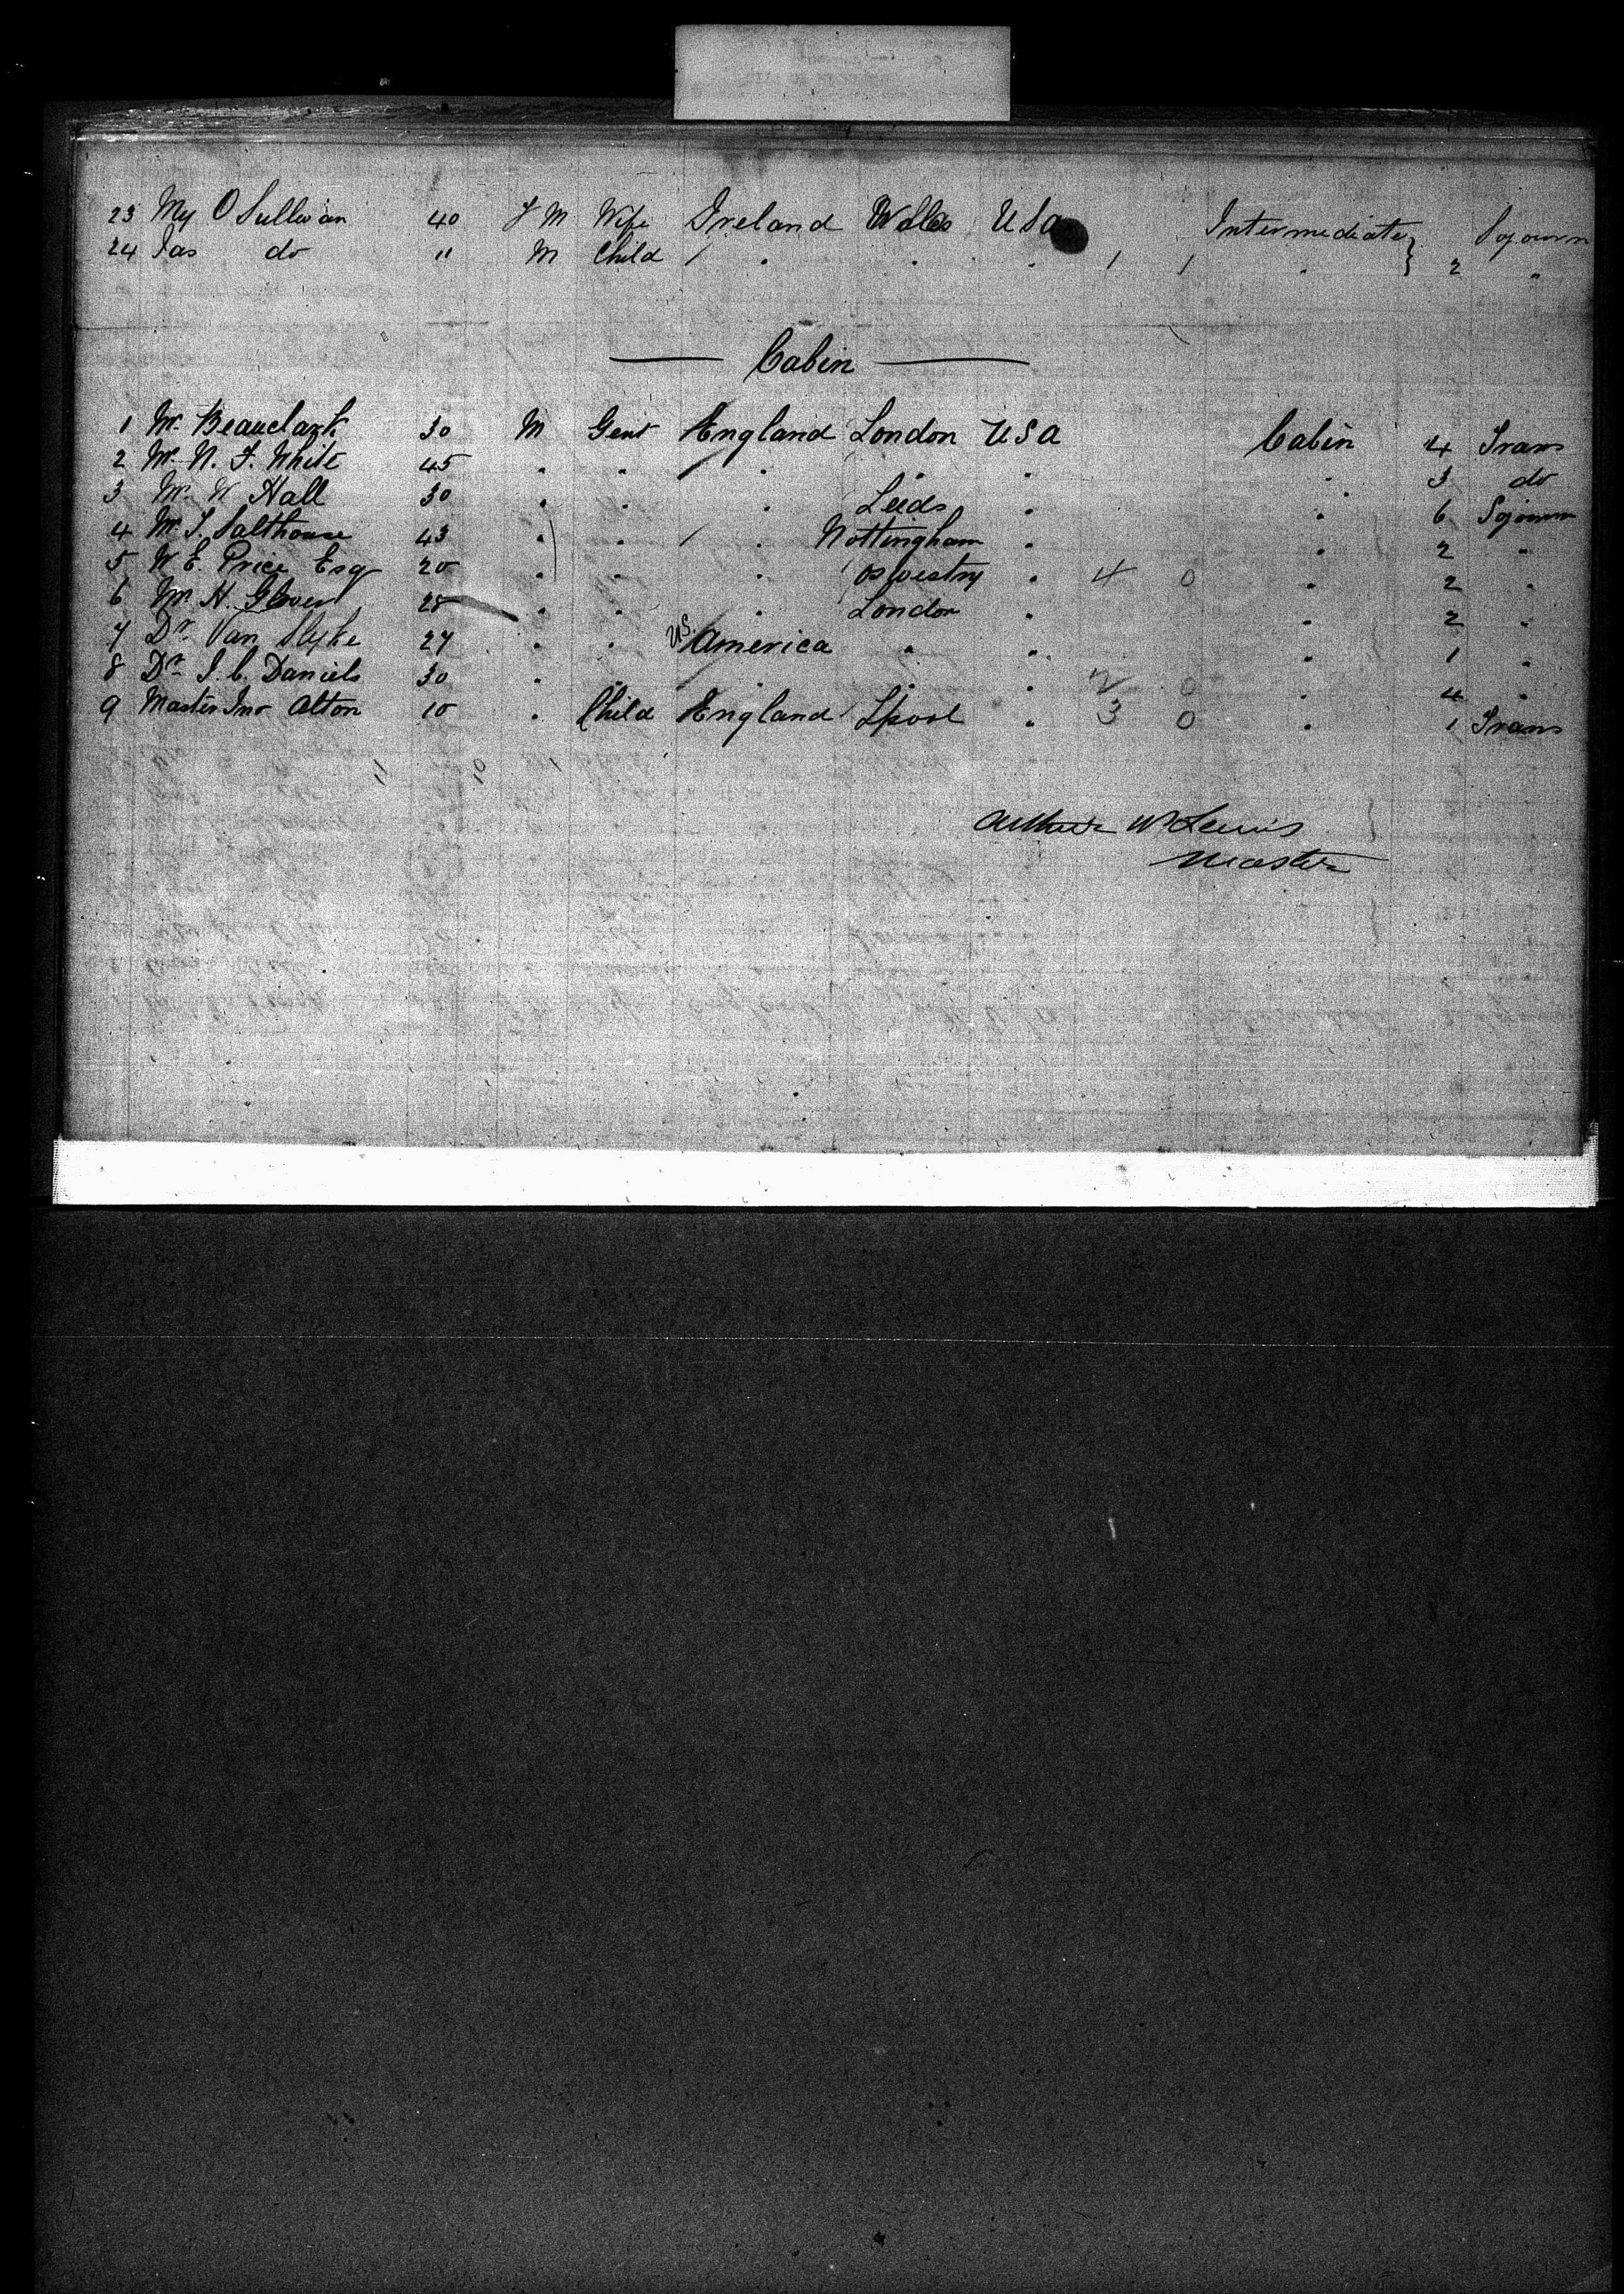 23 My O Sullivan 40 F M Wife Ireland Wales USA Intermediate } Sojourn
24 Jas do 11 M Child / " " " 1 1 " } 2 "
Cabin
1 Mr. Beauclark 30 M Gent England London USA Cabin 4 Trans
2 Mr. N. F. White 45 " " " " " " 3 do
3 Mr. W Hall 30 " " " Leeds " " 6 Sojourn
4 Mr. T. Salthouse 43 " " / " Nottingham " " 2 "
5 W E. Price Esq 20 " " " Oswestry " 4 0 " 2 "
6 Mr. H. Glover 28 " " " London " " 2 "
7 Dr. Van Slyke 27 " " U.S. America " " " 1 "
8 Dr. J. C. Daniels 30 " " " " " 2 0 " 4 "
9 Master Jno Alton 10 " Child England Lpool " 3 0 " 1 Trans
Arthur W Lewis
Master